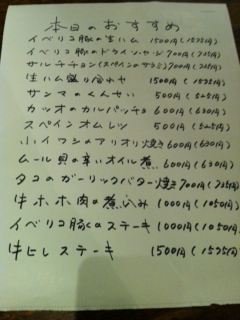 本日のおすすめ
イベリコ豚の生ハム 1500円(1575円)
イベリコ豚のドライソーセージ 700円(735円)
サルチチョン(スペインのサラミ) 700円(735円)
生ハム盛り合わせ 1500円(1575円)
サンマのくんせい 500円(525円)
カツオのカルパッチョ 600円(630円)
スペインオムレツ 500円(525円)
小イワシのアリオリ焼き 600円(630円)
ムール貝の辛いオイル煮 600円(630円)
タコのガーリックバター焼き 700円(735円)
牛ホホ肉の煮込み 1000円(1050円)
イベリコ豚のステーキ 1000円(1050円)
牛ヒレステーキ 1500円(1575円)